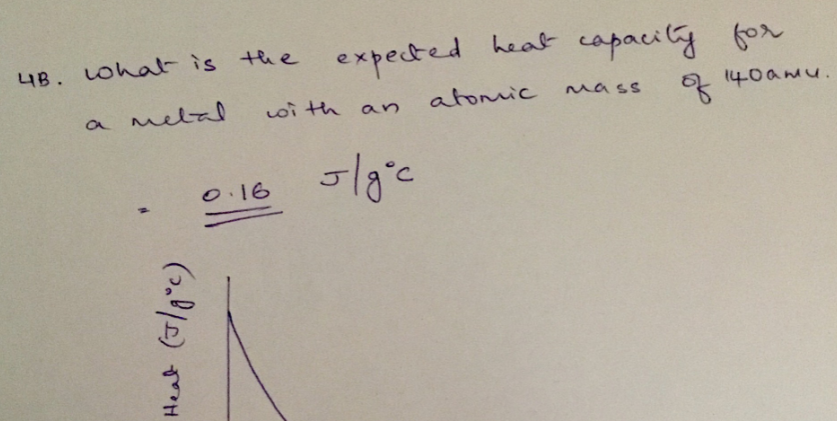 4B. What is the expected heat capacity for
a metal with an atomic mass of 140amu.
= 0.16 J/g°C
Heat (J/g°C)